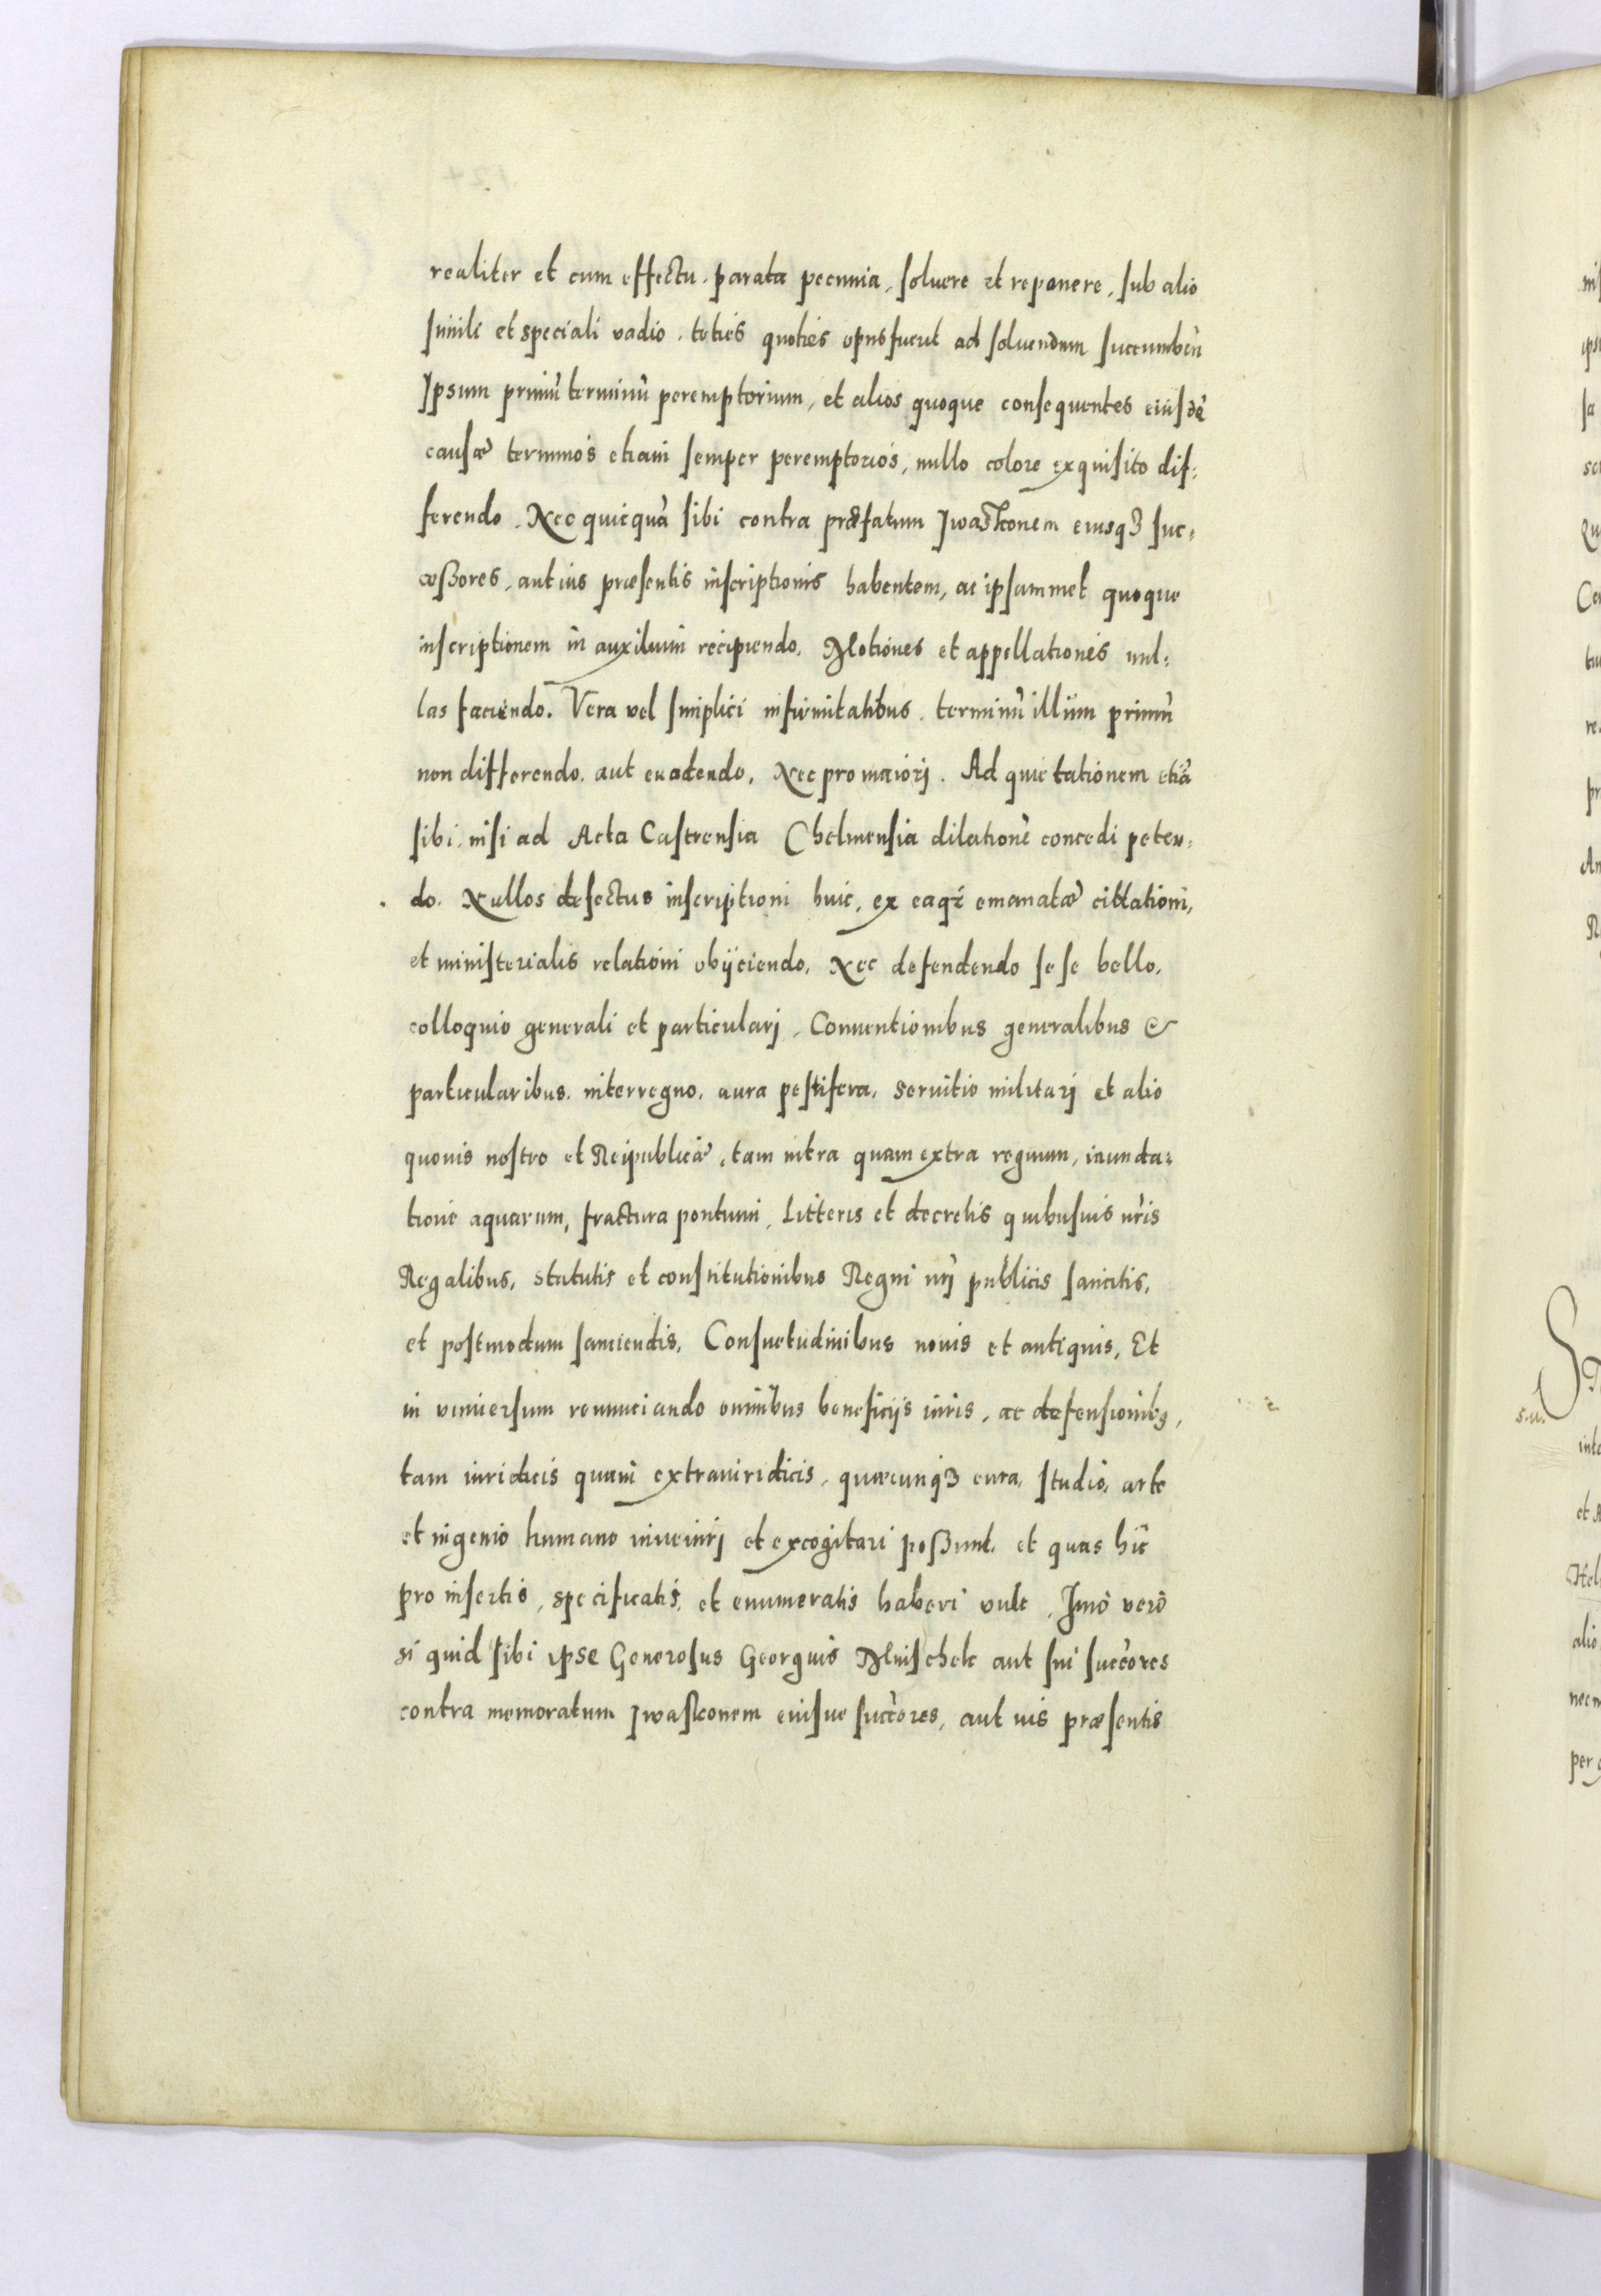 realiter et cum effectu. parata pecunia, soluere et reponere, sub alio
simili et speciali vadio. toties quoties opus fuerit ad soluendum succumbeñ
Ipsum primũ terminũ peremptorium, et alios quoque consequentes eiusdẽ
causæ terminos etiam semper peremptorios, nullo colore exquisito dif-
ferendo. Nec quicquã sibi contra præfatum Jwaskonem eiusqȝ suc-
cessores, aut ius præsentis inscriptionis habentem, ac ipsammet quoque
inscriptionem in auxilium recipiendo. Motiones et appellationes nul-
las faciendo. Vera vel simplici infirmitatibus. terminũ illum primũ
non differendo. aut euadendo. Nec pro maiorj. Ad quietationem etiã
sibi. nisi ad Acta Castrensia Chelmensia dilationẽ concedi peten-
do. Nullos defectus inscriptioni huic, ex eaqȝ emanatæ citationi,
et ministerialis relationi obijciendo. Nec defendendo sese bello.
colloquio generali et particularj, Conuentionibus generalibus &
particularibus. interregno. aura pestifera. seruitio militarj et alio
quouis nostro et Reipublicæ, tam intra quam extra regnum, inunda-
tione aquarum, fractura pontium, Litteris et decretis quibusuis nr̃is
Regalibus, statutis et constitutionibus Regni nrj̃ publicis sancitis,
et postmodum sanciendis, Consuetudinibus nouis et antiquis, Et
in vniuersum renunciando omnibus beneficijs iuris, ac defensionibꝫ,
tam iuridicis quam extraiuridicis, quæcunqȝ cura, studio, arte
et ingenio humano inuenirj et excogitari possunt. et quas hic
pro insertis, specificatis, et enumeratis haberi vult, Imò verò
si quid sibi ipse Generosus Georgius Mnischek aut sui succ̃ores
contra memoratum Jwaskonem eiusue succ̃ores, aut ius præsentis